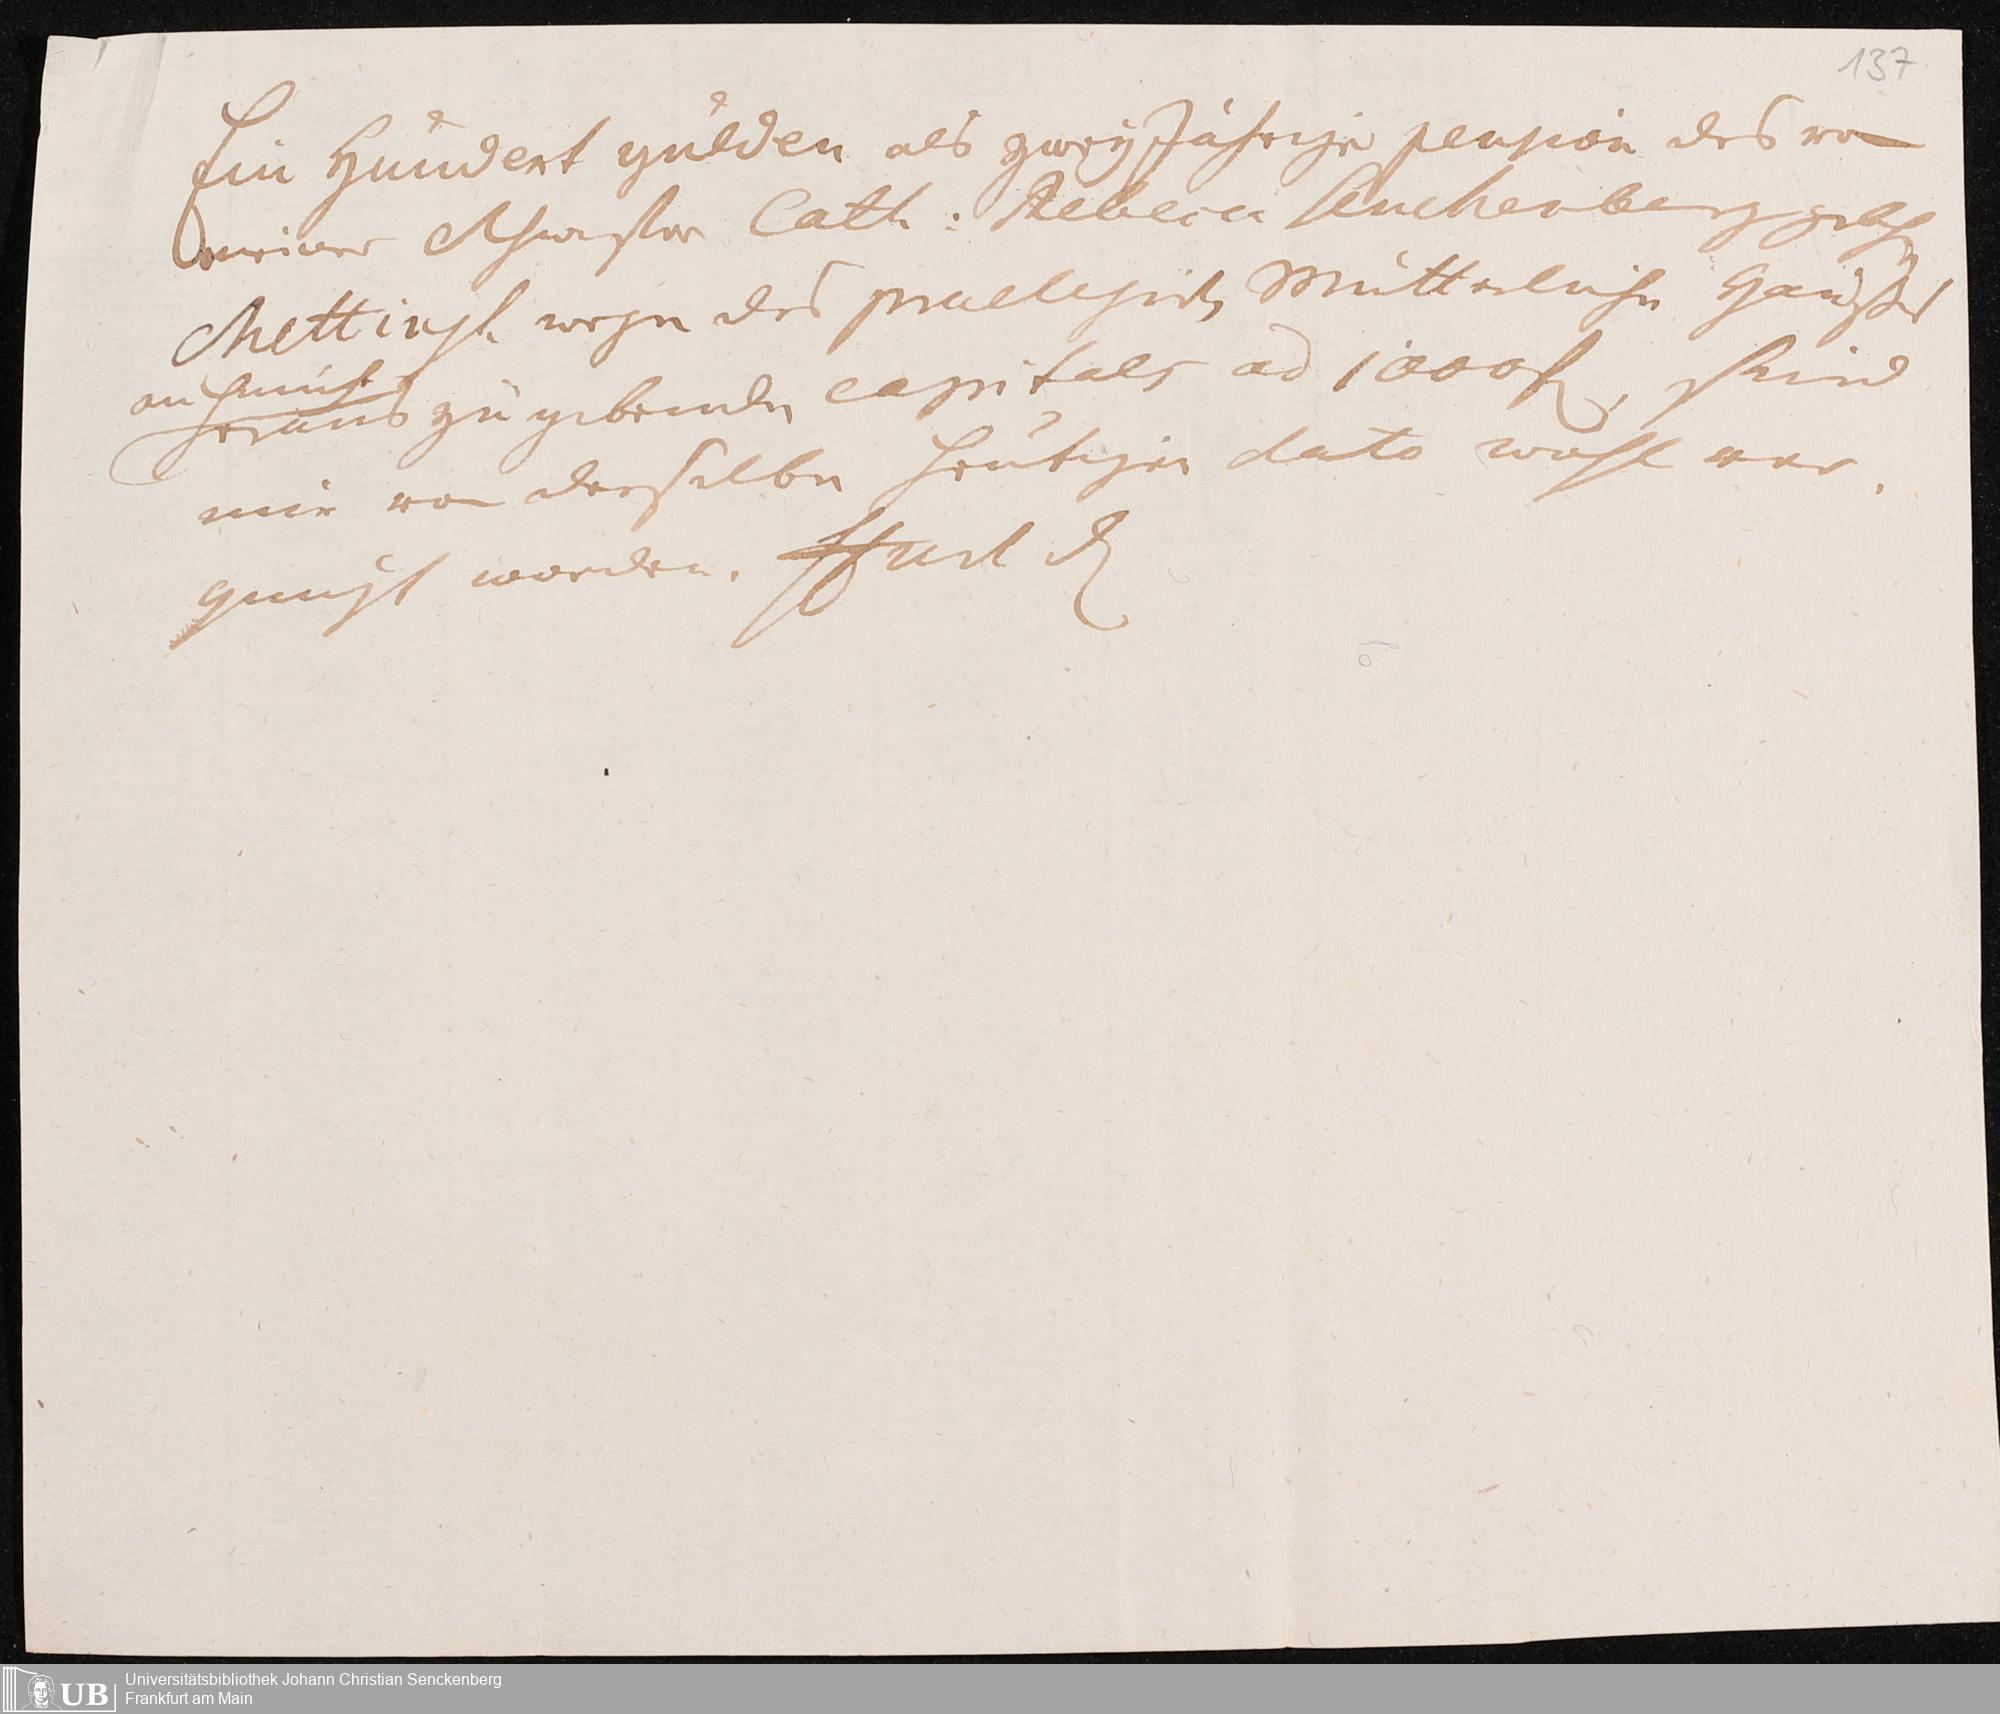 137
Ein Hundert gulden als zweyJährige pension des von
meiner Schwester Cath: Rebecca Senckenberg gebh
Mettingh. wegen des praelegirten Mütterlichen Haußes
an mich
heraus zu gebenden capitals ad 1000 f, seind
mir von derselben heutigen dato wohl ver¬
gnügt worden. Ffurt d
Universitätsbibliothek Johann Christian Senckenberg
Frankfurt am Main
UB